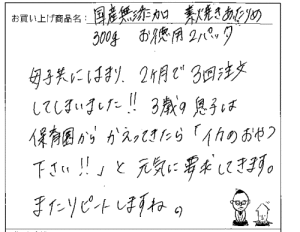 お買い上げ商品名：国産無添加 素焼きあたりめ
300g お徳用2パック
母子共にはまり、2ヶ月で3回注文
してしまいました!! 3歳の息子は
保育園からかえってきたら「イカのおやつ
下さい!!」と元気に要求してきます。
またリピートしますね。